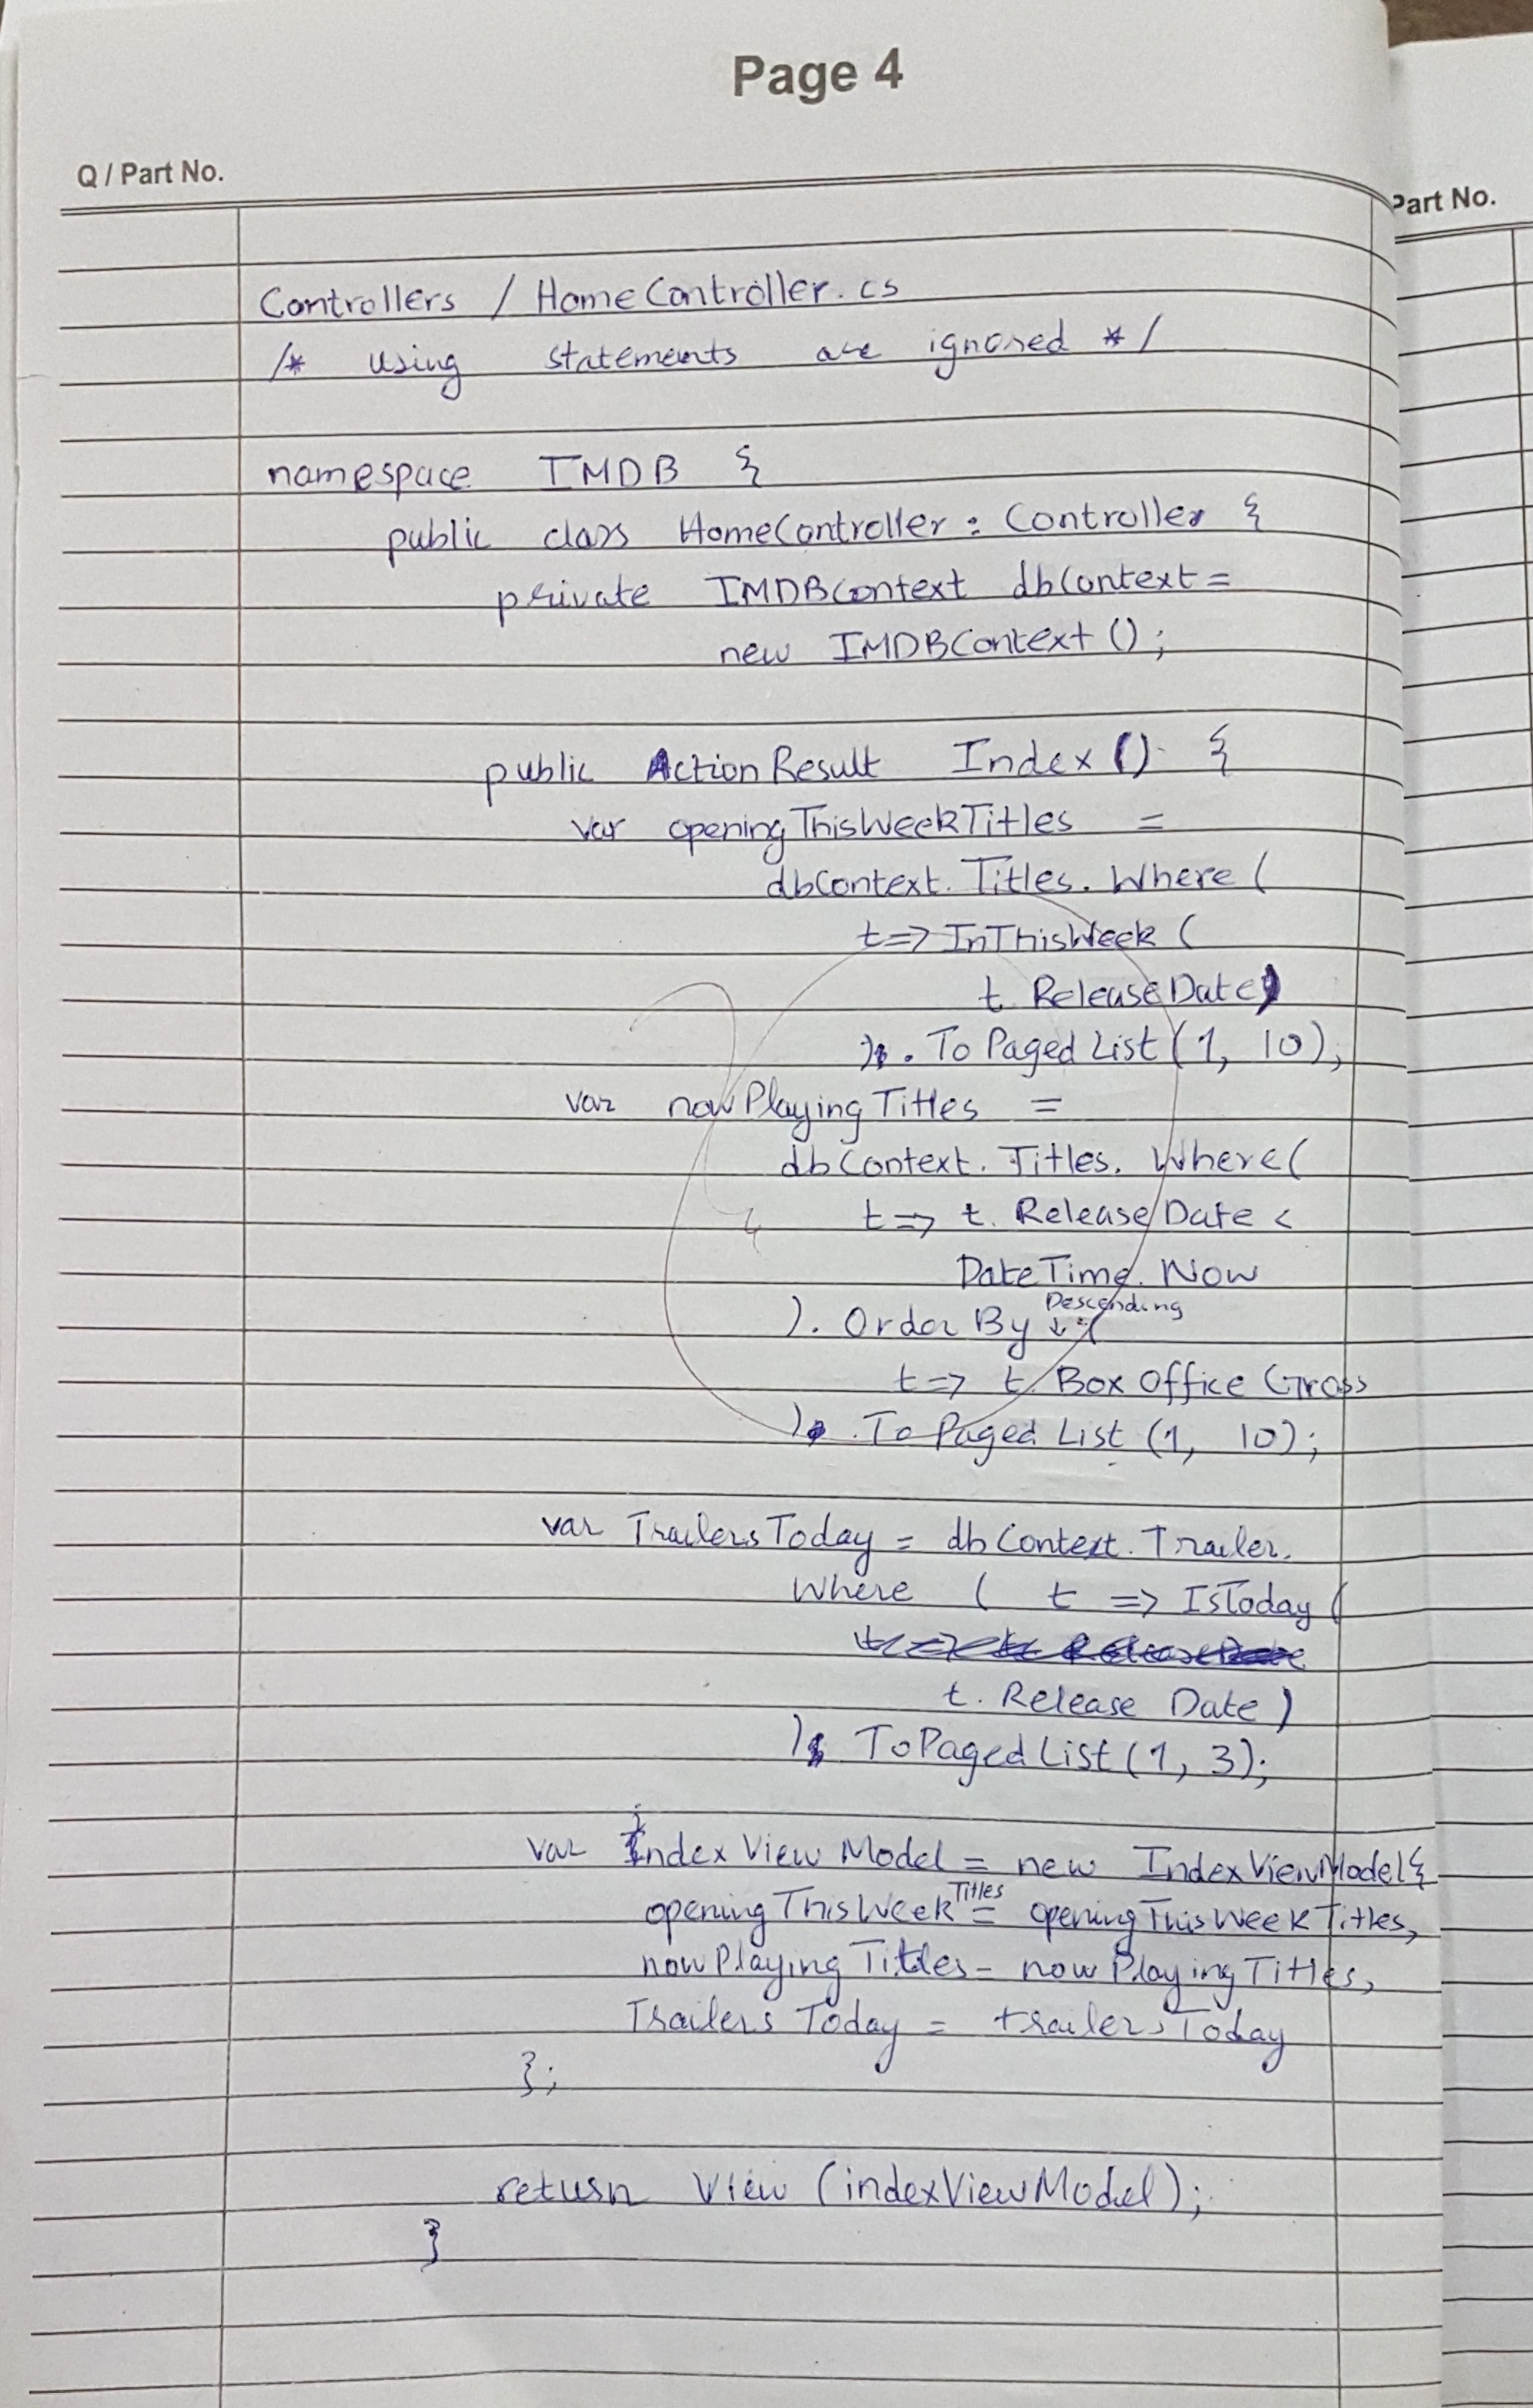 Page 4
Q / Part No.
Part No.
Controllers / HomeController.cs
/* using statements are ignored */
namespace IMDB {
public class HomeController : Controller {
private IMDBContext dbContext =
new IMDBContext ();
public ActionResult Index () {
var openingThisWeekTitles =
dbContext.Titles.Where (
t => InThisWeek (
t.ReleaseDate)
). ToPagedList (1, 10);
var nowPlayingTitles =
dbContext.Titles.Where(
t => t.ReleaseDate <
DateTime.Now
). OrderByDescending (
t => t.BoxOfficeGross
).ToPagedList (1, 10);
var TrailersToday = dbContext.Trailer.
Where ( t => IsToday (
t.ReleaseDate )
). ToPagedList (1, 3);
var indexViewModel = new IndexViewModel{
openingThisWeekTitles = openingThisWeekTitles,
nowPlayingTitles = nowPlayingTitles,
TrailersToday = trailersToday
};
return View (indexViewModel);
}